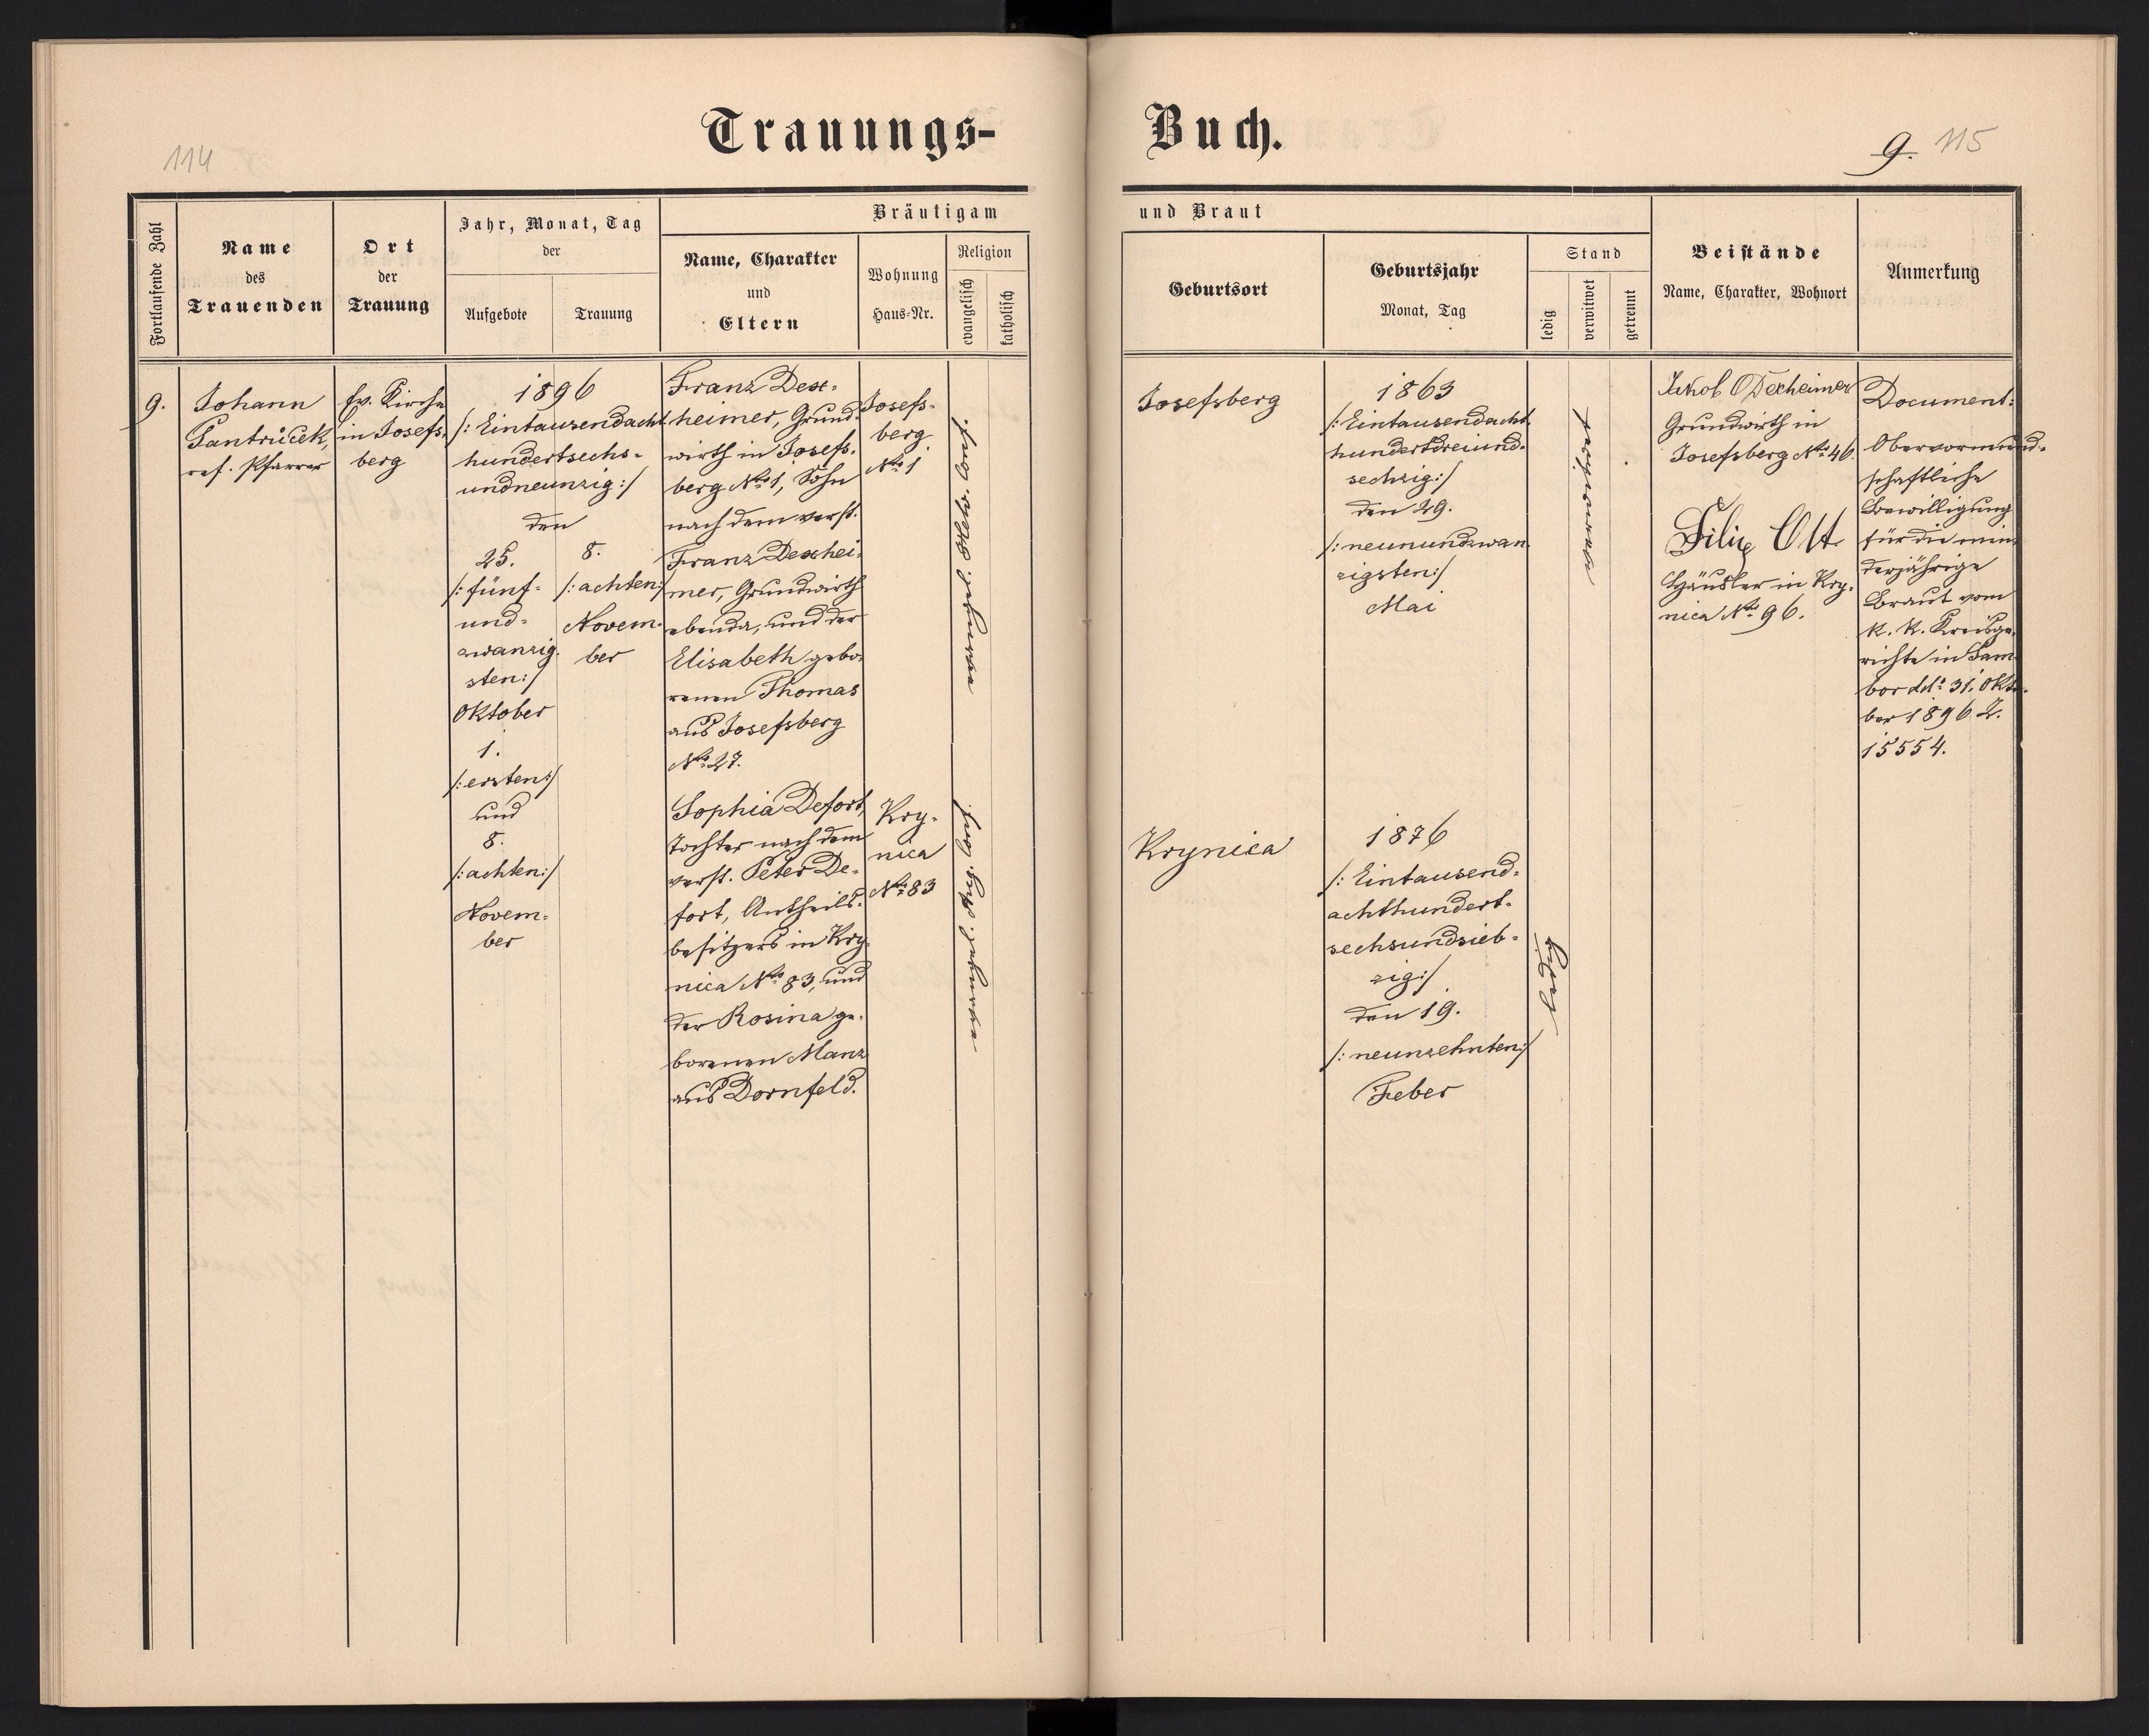 114
Trauungs-
Fortlaufende Zahl
Name
des
Trauenden
Ort
der
Trauung
Jahr, Monat, Tag
der
Aufgebote
Trauung
Bräutigam
Name, Charakter
und
Eltern
Wohnung
Haus-Nr.
Religion
evangelisch
katholisch
9.
Johann
Pantrůček,
ref. Pfarrer
Ev. Kirche
in Josefs-
berg
1896
/: Eintausendacht
hundertsechs-
undneunzig :/
den
25.
/: fünf-
und-
zwanzig-
sten :/
Oktober
1.
/: ersten :/
und
8.
/: achten :/
Novem-
ber
8.
/: achten :/
Novem-
ber
Franz Dex-
heimer, Grund-
wirth in Josefs-
berg No. 1, Sohn
nach dem verst.
Franz Dexhei-
mer, Grundwirth
ebenda, und der
Elisabeth gebo-
renen Thomas
aus Josefsberg
No. 27.
Josefs-
berg
No. 1
Conf.
Sophia Defort,
Tochter nach dem
verst. Peter De-
fort, Antheils-
besitzers in Kry-
nica No. 83, und
der Rosina ge-
borenen Manz
aus Dornfeld.
Kry-
nica
No. 83
Conf.
Buch.
9. 115
und Braut
Geburtsort
Geburtsjahr
Monat, Tag
Stand
ledig
verwitwet
getrennt
Beistände
Name, Charakter, Wohnort
Anmerkung
Josefsberg
1863
/: Eintausendacht-
hundertdreiund-
sechzig :/
den 29.
/: neunundzwan-
zigsten :/
Mai
verwitwet
Jakob Dexheimer
Grundwirth in
Josefsberg No. 46.
Filip Ott
Häusler in Kry-
nica No. 96.
Document:
Obervormund-
schaftliche
Bewilligung
für die min-
derjährige
Braut vom
k. k. Kreisge-
richte in Sam-
bor ddo. 31. Okto-
ber 1896 Z.
15554.
Krynica
1876
/: Eintausend-
achthundert-
sechsundsieb-
zig :/
den 19.
/: neunzehnten :/
Feber
ledig